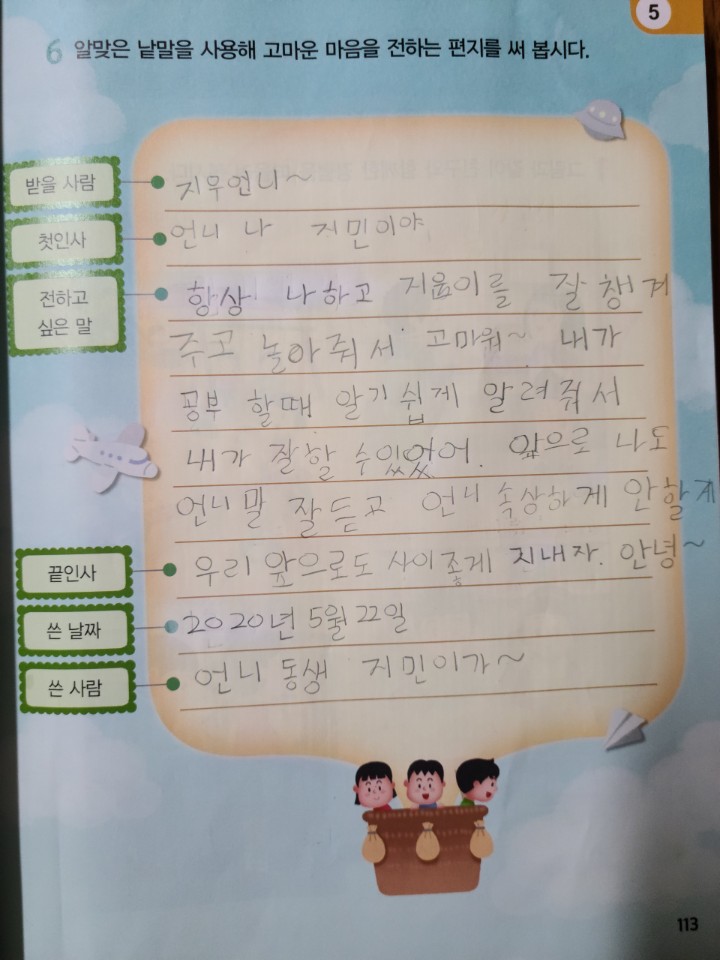 5
6 알맞은 낱말을 사용해 고마운 마음을 전하는 편지를 써 봅시다.
받을 사람
지우언니~
첫인사
언니 나 지민이야
전하고
싶은 말
항상 나하고 지윤이를 잘 챙겨
주고 놀아줘서 고마워~ 내가
공부 할때 알기쉽게 알려줘서
내가 잘할 수있었어. 앞으로 나도
언니말 잘듣고 언니 속상하게 안할게
끝인사
우리 앞으로도 사이좋게 지내자. 안녕~
쓴 날짜
2020년 5월 22일
쓴 사람
언니 동생 지민이가~
113